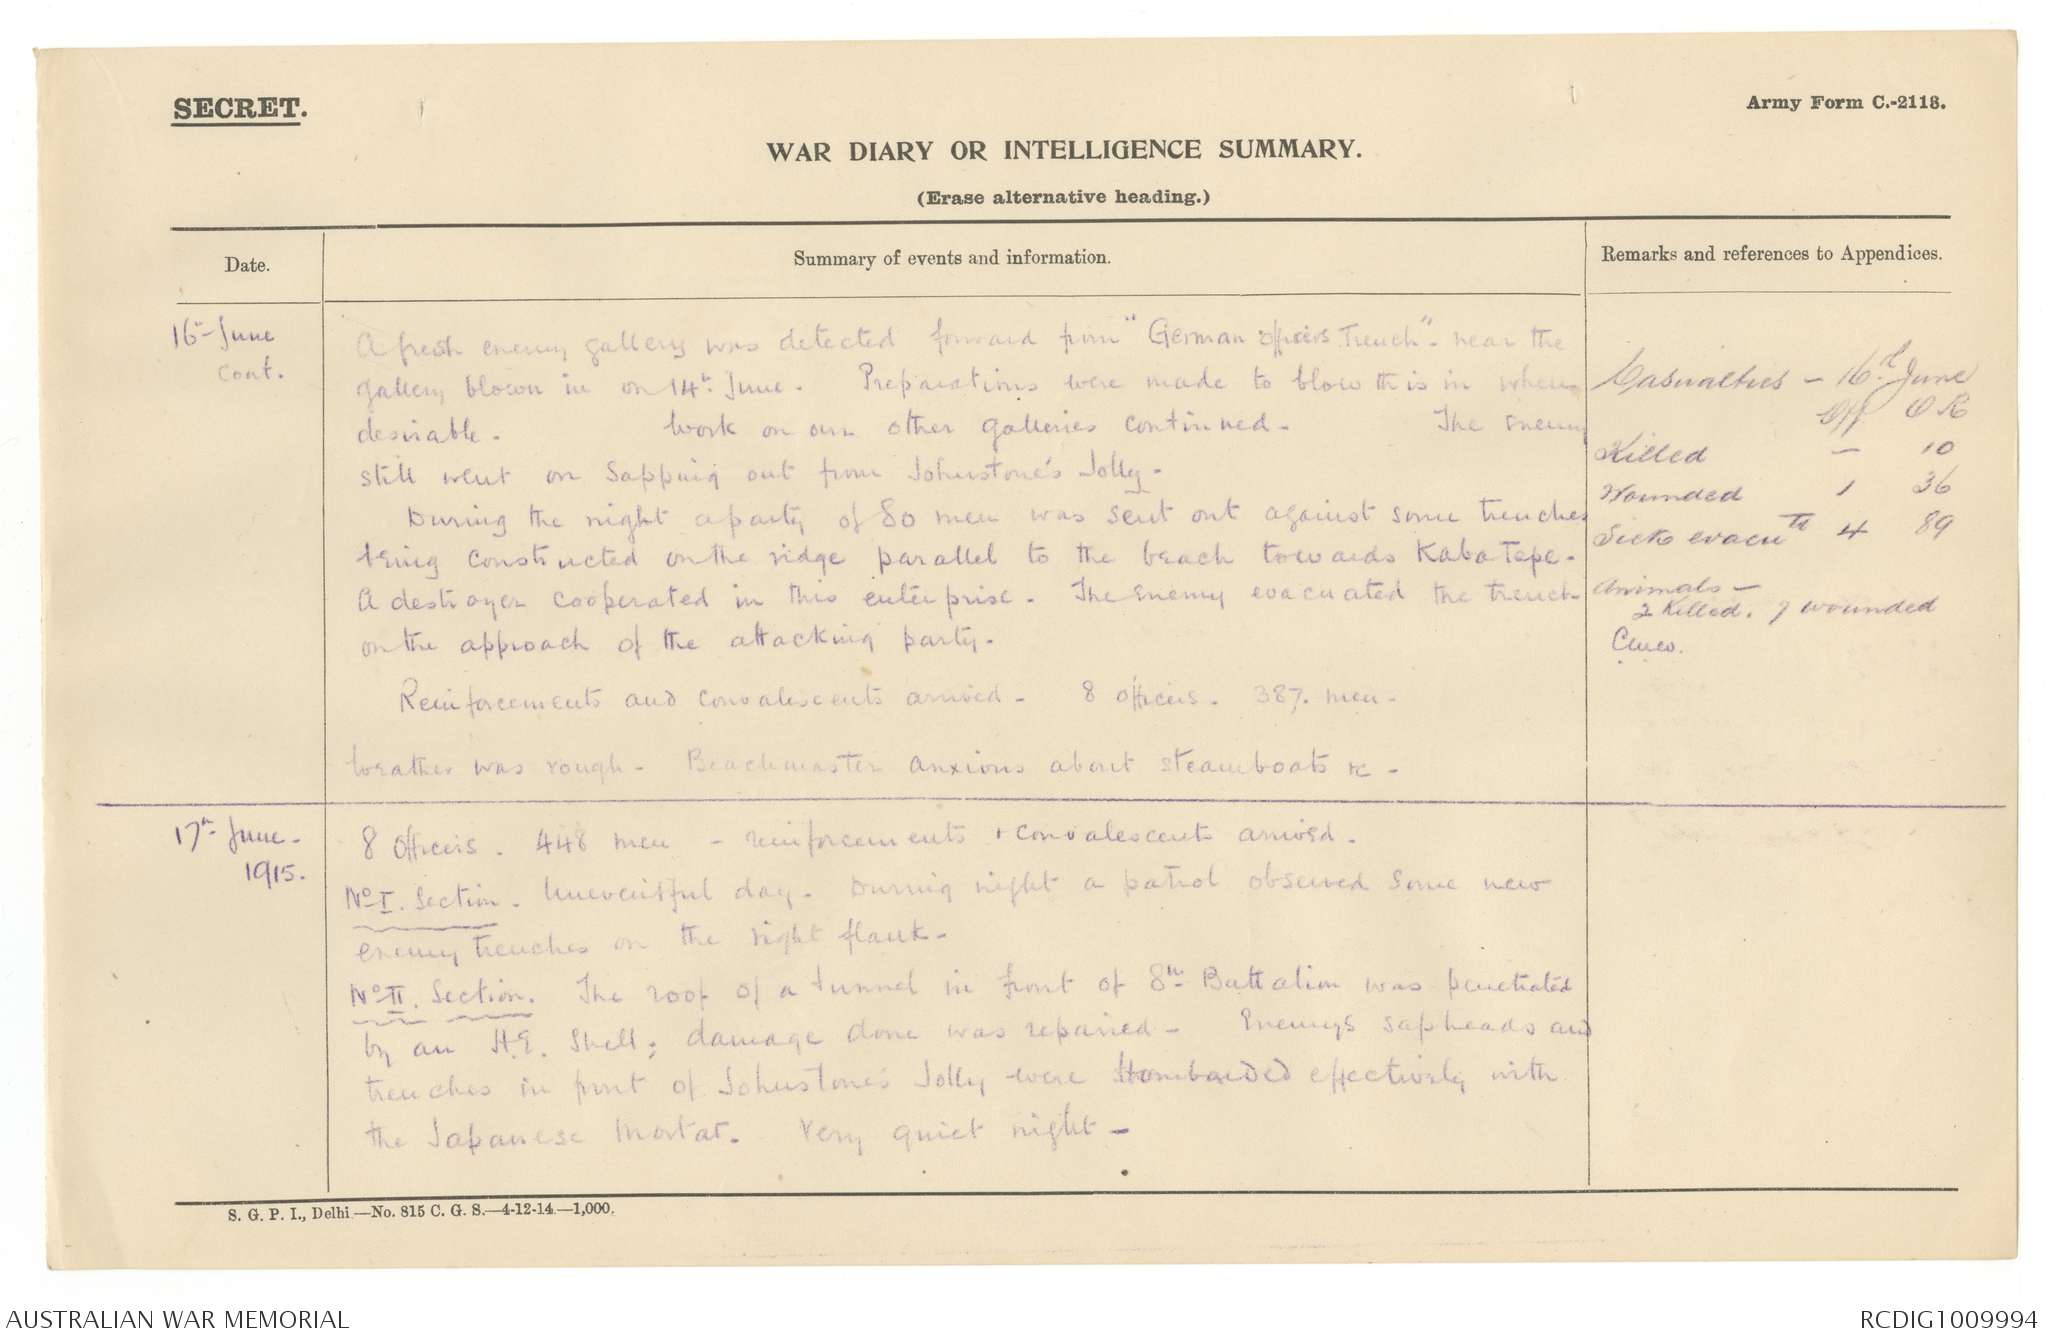 SECRET.
Army Form C.-2118.
WAR DIARY OR INTELLIGENCE SUMMARY.
(Erase alternative heading.)
Date.
Summary of events and information.
Remarks and references to Appendices.
16th June
cont.
A fresh enemy gallery was detected forward from "German officers Trench" - near the
gallery blown in on 14th June. Preparations were made to blow this in when
desirable. Work on our other galleries continued. The enemy
still went on sapping out from Johnstone's Jolly.
During the night a party of 80 men was sent out against some trenches
being constructed on the ridge parallel to the beach towards Kaba Tepe.
A destroyer cooperated in this enterprise. The Enemy evacuated the trench
on the approach of the attacking party.
Reinforcements and convalescents arrived - 8 officers. 387. men.
Weather was rough - Beachmaster anxious about steamboats &c -
Casualties - 16th June
Off O R
Killed - 10
Wounded 1 36
Sick evacu th 4 89
Animals -
2 Killed. 7 wounded
17th June.
1915.
8 Officers. 448 men - reinforcements + convalescents arrived.
No I. Section. Uneventful day. During night a patrol observed some new
enemy trenches on the right flank.
No II. Section. The roof of a tunnel in front of 8th Battalion was penetrated
by an H.E. Shell; damage done was repaired - Enemys sapheads and
trenches in front of Johnstone's Jolly were bombarded effectively with
the Japanese Mortar. Very quiet night -
S. G. P. I., Delhi.—No. 815 C. G. S.—4-12-14.—1,000.
AUSTRALIAN WAR MEMORIAL
RCDIG1009994